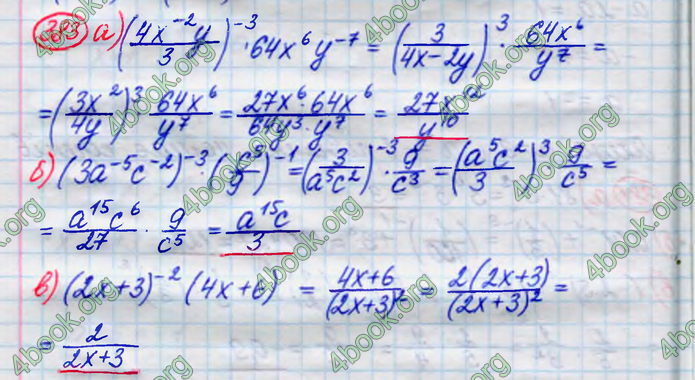 383 а) (4x⁻²y/3)⁻³ · 64x⁶y⁻⁷ = (3/4x-2y)³ · 64x⁶/y⁷ =
= (3x²/4y)³ · 64x⁶/y⁷ = 27x⁶·64x⁶/64y³·y⁷ = 27x¹²/y¹⁰
б) (3a⁻⁵c⁻²)⁻³ · (/9)⁻¹ = (3/a⁵c²)⁻³ · 9/c³ = (a⁵c²/3)³ 9/c⁵ =
= a¹⁵c⁶/27 · 9/c⁵ = a¹⁵c/3
в) (2x+3)⁻² (4x+6) = 4x+6/(2x+3)² = 2(2x+3)/(2x+3)² =
= 2/2x+3
4book.org